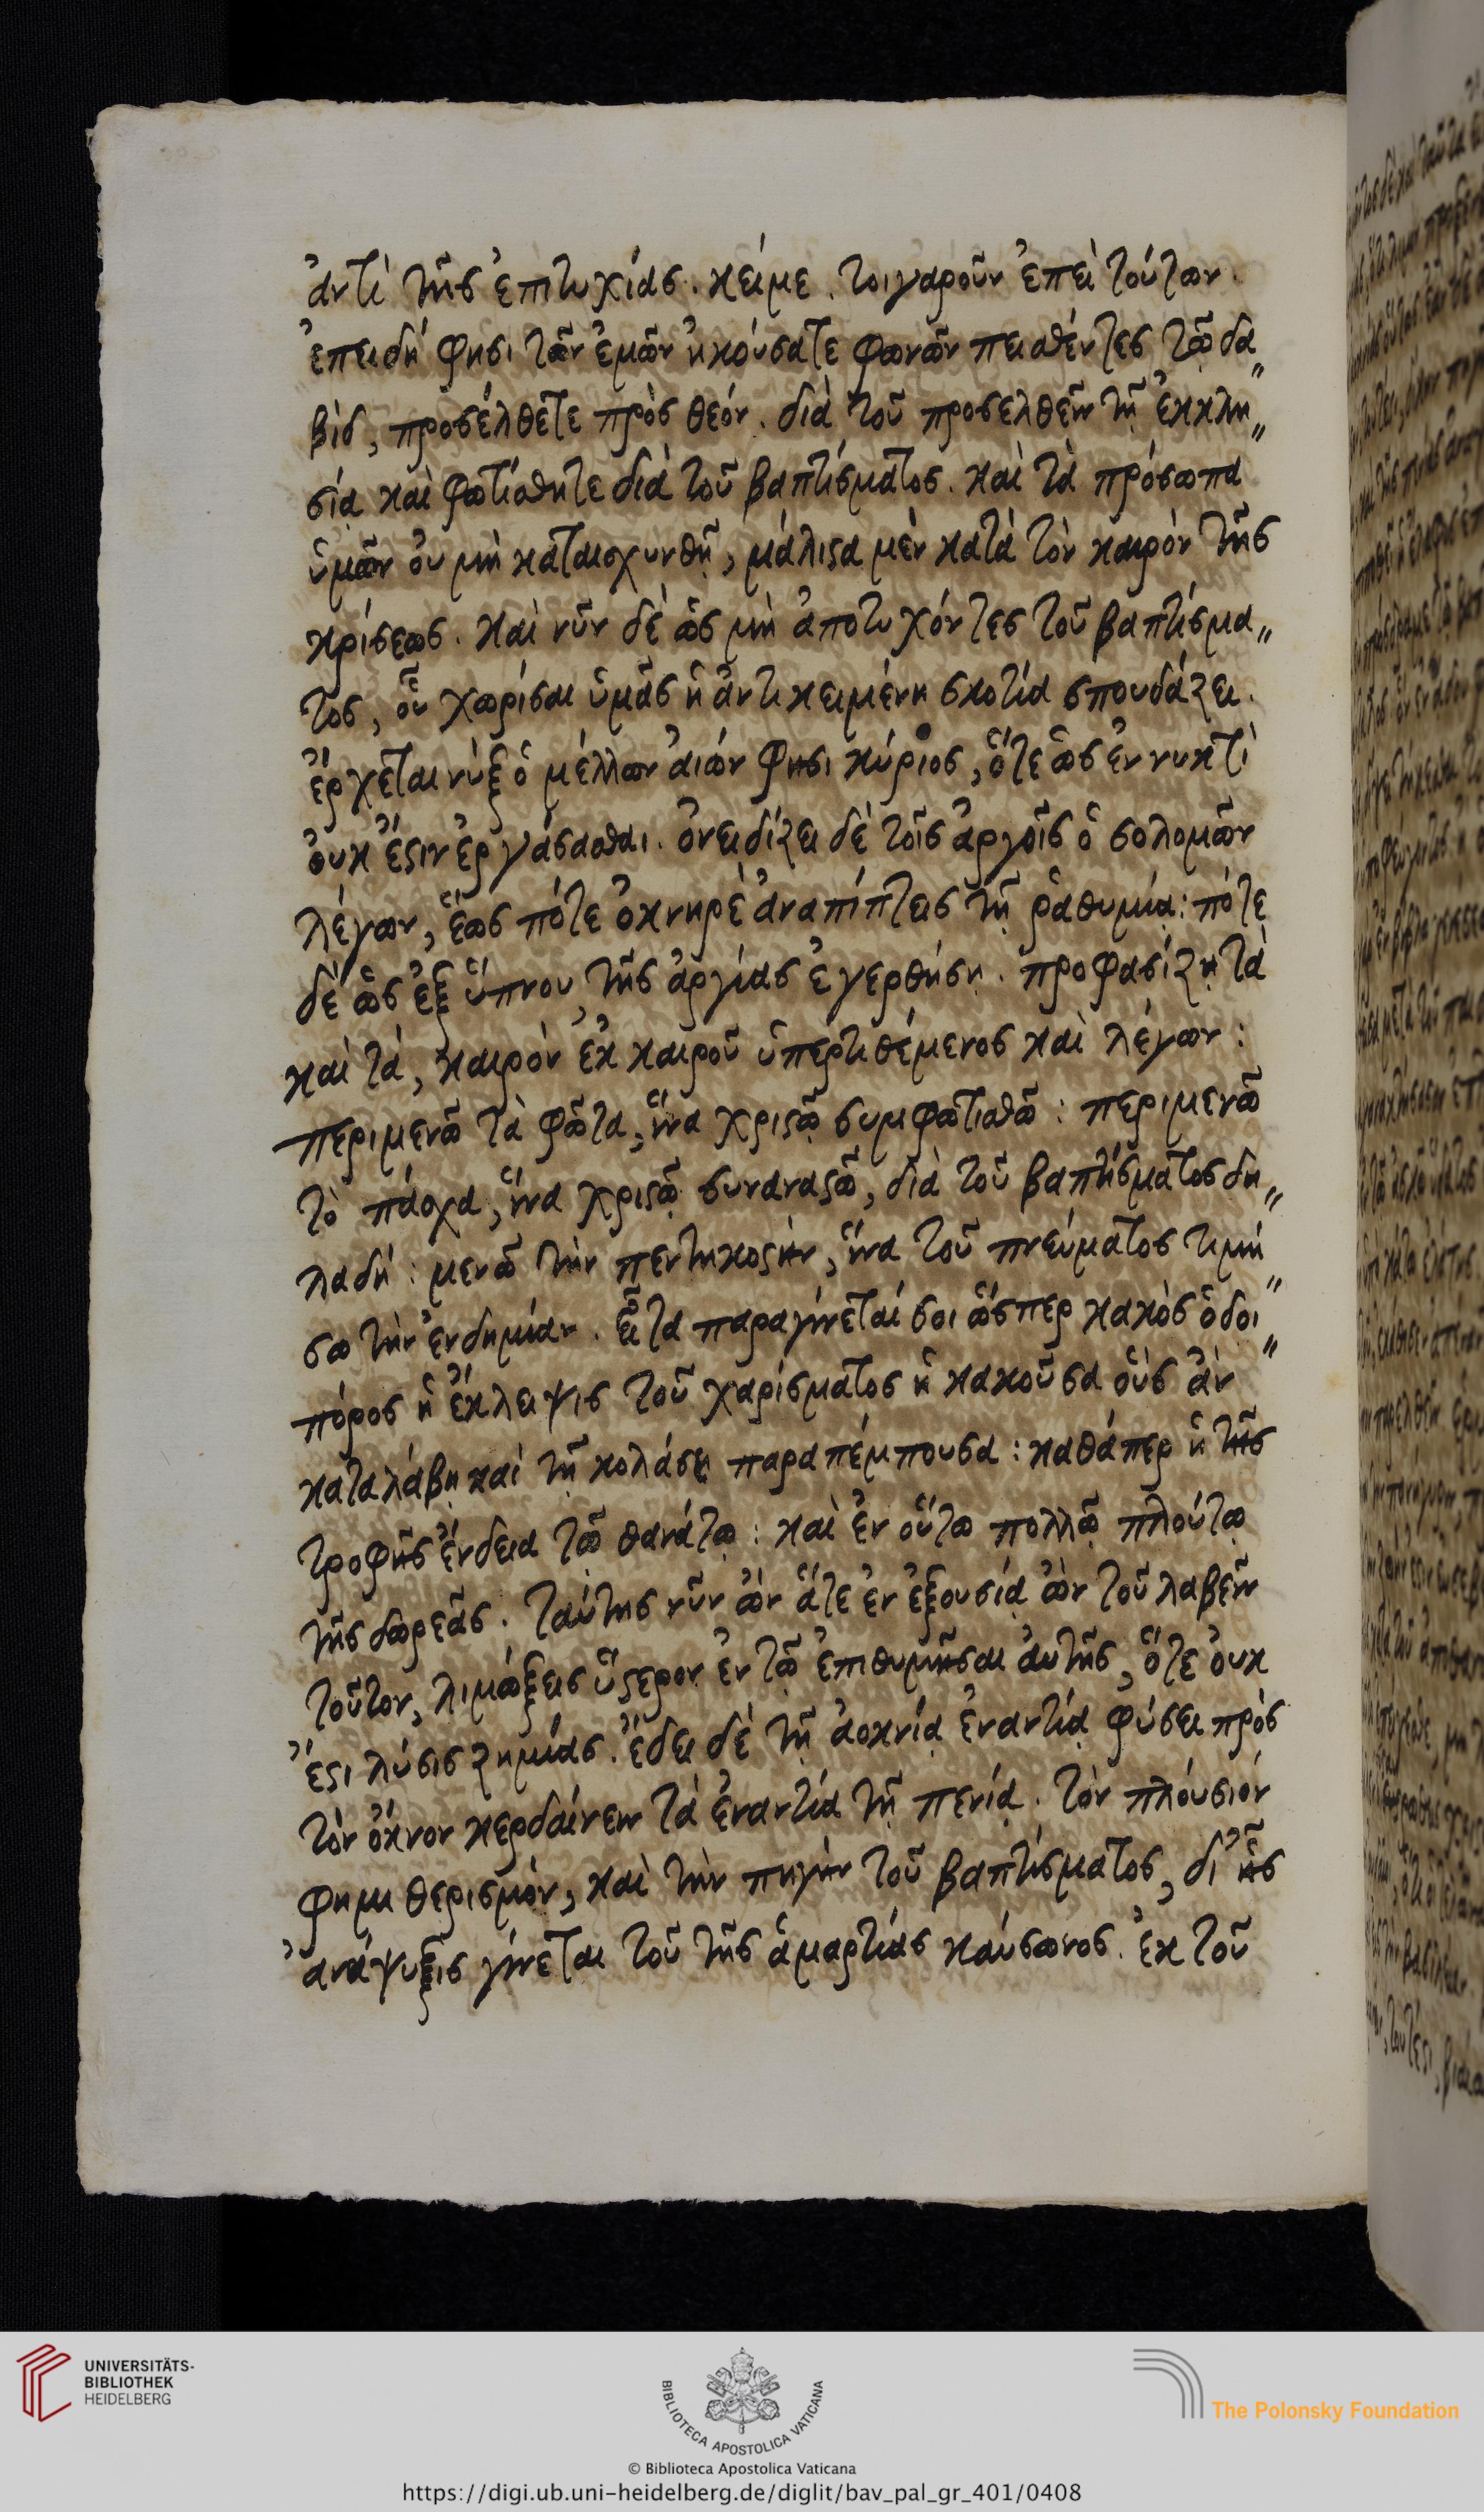 ἀντὶ τῆς ἐπιτυχίας. κείμε. τοιγαροῦν ἐπεὶ τούτων.
ἐπειδή φησι τῶν ἐμῶν ἠκούσατε φωνῶν πεισθέντες τῷ δα〃
βὶδ, προσέλθετε πρὸς θεόν. διὰ τοῦ προσελθεῖν τῇ ἐκκλη〃
σίᾳ καὶ φωτίσθητε διὰ τοῦ βαπτίσματος. καὶ τὰ πρόσωπα
ὑμῶν οὐ μὴ καταισχυνθῇ, μάλιστα μὲν κατὰ τὸν καιρὸν τῆς
κρίσεως. καὶ νῦν δὲ ὡς μὴ ἀποτυχόντες τοῦ βαπτίσμα〃
τος, οὗ χωρίσαι ὑμᾶς ἡ ἀντικειμένη σκοτία σπουδάζει.
ἔρχεται νὺξ ὁ μέλλων αἰών φησι κύριος, ὅτε ὡς ἐν νυκτὶ
οὐκ ἔστιν ἐργάσασθαι. ὀνειδίζει δὲ τοῖς ἀργοῖς ὁ σολομῶν
λέγων, ἕως πότε ὀκνηρὲ ἀναπίπτεις τῇ ῥαθυμίᾳ: πότε
δὲ ὡς ἐξ ὕπνου τῆς ἀργίας ἐγερθήσῃ. προφασίζῃ τὰ
καὶ τά, καιρὸν ἐκ καιροῦ ὑπερτιθέμενος καὶ λέγων:
περιμενῶ τὰ φῶτα, ἵνα χριστῷ συμφωτισθῶ: περιμενῶ
τὸ πάσχα, ἵνα χριστῷ συναναστῶ, διὰ τοῦ βαπτίσματος δη〃
λαδή: μενῶ τὴν πεντηκοστὴν, ἵνα τοῦ πνεύματος τιμή〃
σω τὴν ἐνδημίαν. εἶτα παραγίνεταί σοι ὥσπερ κακὸς ὁδοι〃
πόρος ἡ ἔκλειψις τοῦ χαρίσματος ἡ κακοῦσα οὓς ἂν
καταλάβῃ καὶ τῇ κολάσει παραπέμπουσα: καθάπερ ἡ τῆς
τροφῆς ἔνδεια τῷ θανάτῳ: καὶ ἐν οὕτω πολλῷ πλούτῳ
τῆς δωρεᾶς. ταύτης νῦν ὢν ἅτε ἐν ἐξουσίᾳ ὢν τοῦ λαβεῖν
τοῦτον, λιμώξεις ὕστερον ἐν τῷ ἐπιθυμῆσαι αὐτῆς, ὅτε οὐκ
ἔστι λύσις ζημίας. ἔδει δὲ τῇ ἀοκνίᾳ ἐναντίᾳ φύσει πρὸς
τὸν ὄκνον κερδαίνειν τὰ ἐναντία τῇ πενίᾳ. τὸν πλούσιόν
φημι θερισμόν, καὶ τὴν πηγὴν τοῦ βαπτίσματος, δι' ἧς
ἀνάψυξις γίνεται τοῦ τῆς ἁμαρτίας καύσωνος. ἐκ τοῦ
UNIVERSITÄTS-
BIBLIOTHEK
HEIDELBERG
BIBLIOTECA APOSTOLICA VATICANA
© Biblioteca Apostolica Vaticana
The Polonsky Foundation
https://digi.ub.uni-heidelberg.de/diglit/bav_pal_gr_401/0408